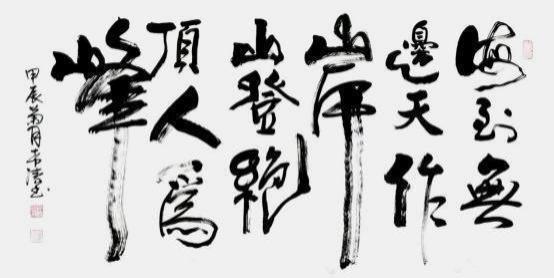 海到無
邊天作
岸
山登絕
頂人為
峰
甲辰菊月